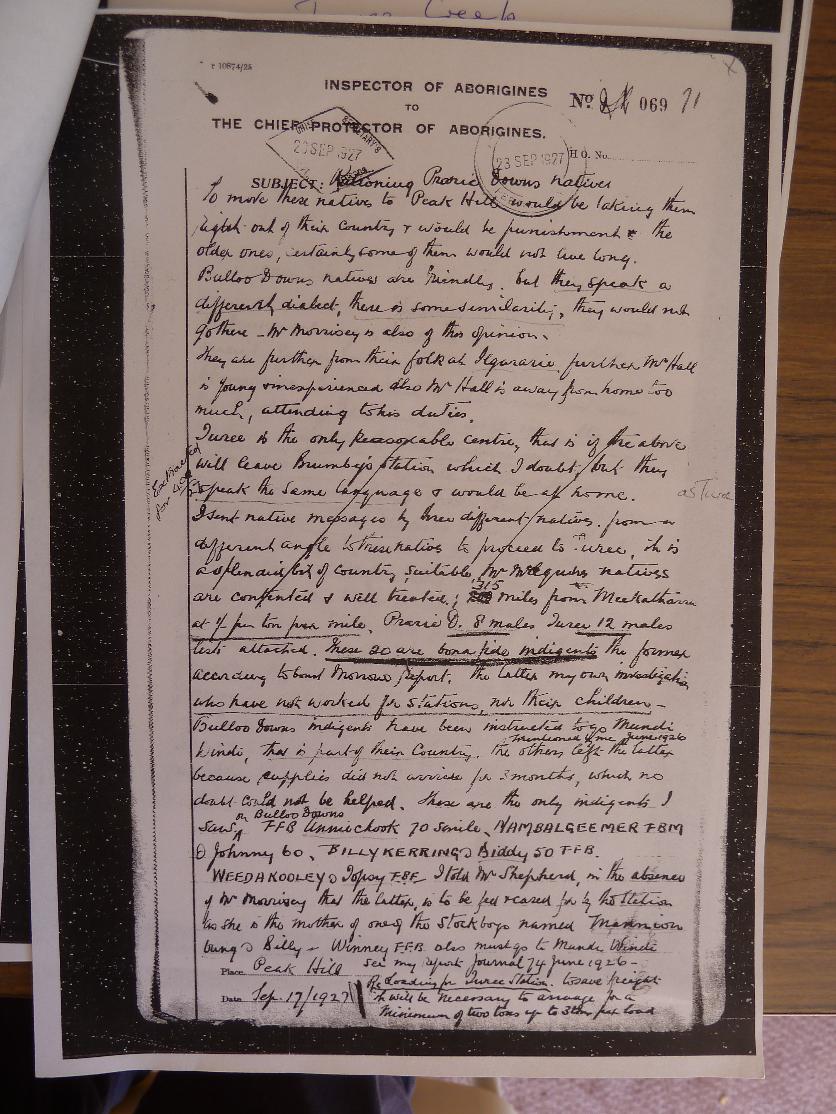 F 10874/25
INSPECTOR OF ABORIGINES
TO
THE CHIEF PROTECTOR OF ABORIGINES.
No. 069 71
CHIEF SECRETARY'S
23 SEP 1927
23 SEP 1927
H O. No.
SUBJECT: Rationing Prarie Downs natives
To move these natives to Peak Hill would be taking them
right out of their Country & would be punishment to the
older ones, certainly some of them would not live long.
Bulloo Downs natives are friendly, but they speak a
different dialect, there is some similarity, they would not
go there - Mr Morrisey is also of this opinion.
They are further from their folk at Ilgararie, further Mr Hall
is young & inexperienced also Mr Hall is away from home too
much, attending to his duties.
Turee is the only Reasonable centre, that is if the above
will leave Brumby's Station which I doubt, but they
speak the same language & would be at home.
as Turee
Extracted
for
I sent native messages by three different natives. from a
different angle to these natives to proceed to Turee, it is
a splendid bit of Country, suitable, natives
are contented & well treated; 315 miles from Meekatharra
at per ton per mile. Prarie D. 8 males Turee 12 males
lists attached. These 20 are bona fide indigents the former
according to Const Morrow report. the latter my own investigation
who have not worked for stations, nor their children -
Bulloo Downs indigents have been instructed to go Mundi
mentioned June 1926
Windi, that is part of their Country. the others left the latter
because supplies did not arrive for 3 months, which no
doubt could not be helped. These are the only indigents I
on Bulloo Downs
saw, FFB Annie chook 70 senile, NAMBALGEEMER FBM
Johnny 60, BILLYKERRING Biddy 50 FFB.
WEEDAKOOLEY Topsy FBF I told Mr Shepherd, in the absence
of Mr Morrisey that the latter, is to be fed & cared for by the Station
as she is the mother of one of the Stockboys named
Billy - Winney FFB also must go to Mundi Windi
see my report Journal 74 June 1926 -
Place Peak Hill
Date Sep. 17/1927
Re Loading for Turee Station. to save freight
it will be necessary to arrange for a
minimum of two tons up to 3 ton per load